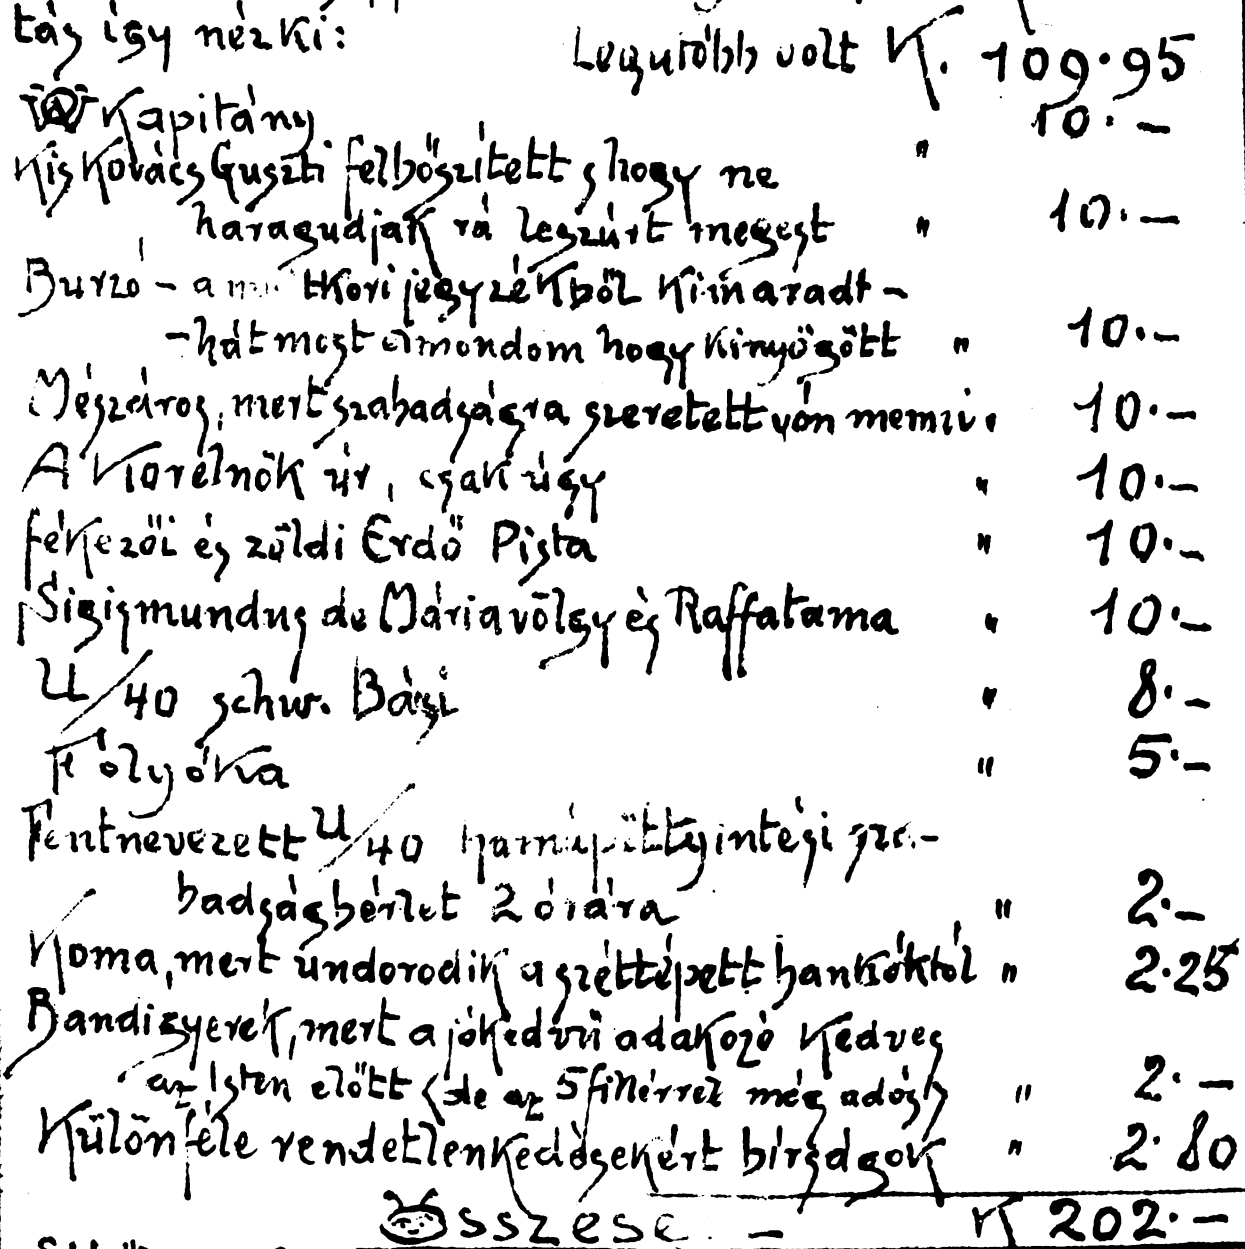 tás így néz ki:
Legutóbb volt K. 109.95
Kapitány " 10.—
Kis Kovács Guszti felbőszített s hogy ne
haragudjak rá leszúrt megest " 10.—
Burzó – a múltkori jegyzékből kimaradt –
– hát most elmondom hogy kinyögött " 10.—
Mészáros, mert szabadságra szeretett vón menni. 10.—
A Korelnök úr, csak úgy " 10.—
fékezői és zöldi Erdő Pista " 10.—
Sigigmundus de Máriavölgy és Raffatama " 10.—
U/40 schw. Bási " 8.—
Fólyóka " 5.—
Fentnevezett U/40 szo-
badságbérlet 2 órára " 2.—
Koma, mert undorodik a széttépett bankóktól " 2.25
Bandigyerek, mert a jókedvű adakozó kedves
az Isten előtt (de az 5 fillérrel még adós) " 2.—
Különféle rendetlenkedésekért bírságok " 2.80
Össze K 202.—